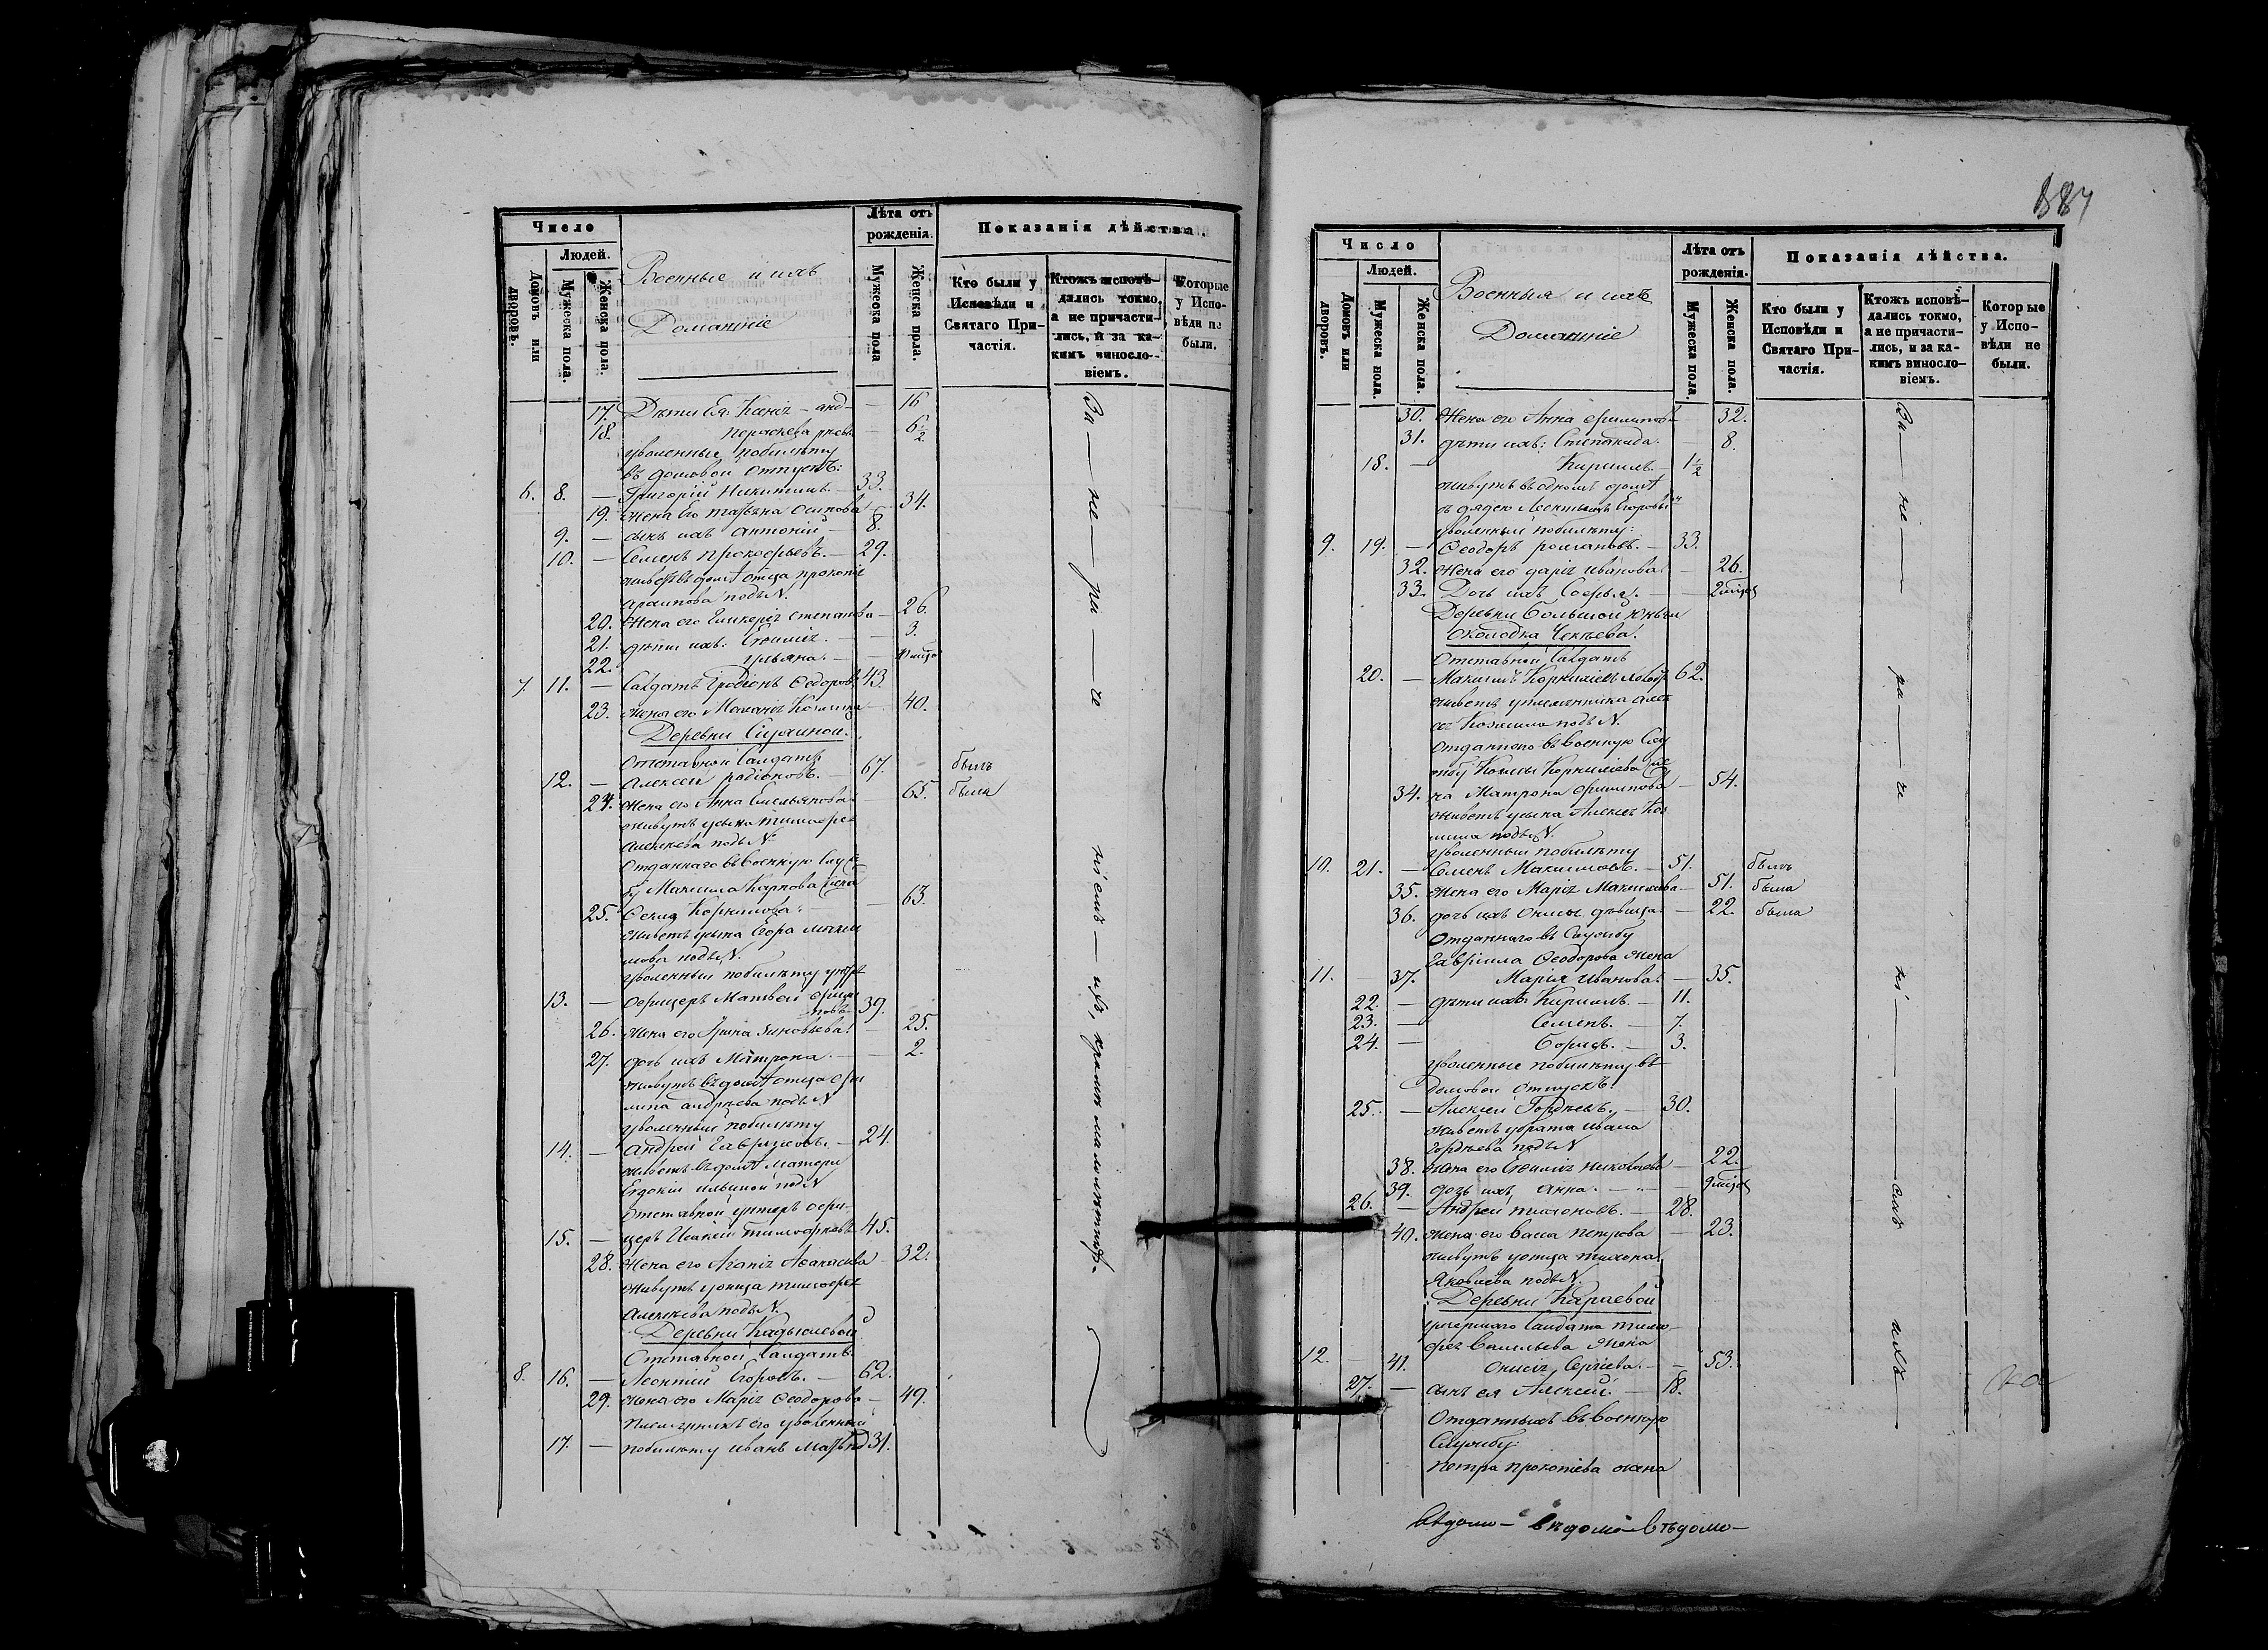 Число
Людей.
Домовъ или дворовъ.
Мужеска пола.
Женска пола.
Военные и ихъ
Домашніе
Лѣта отъ рожденія.
Мужеска пола
Женска пола.
Показанія дѣйства.
Кто были у Исповѣди и Святаго Причастія.
Ктожъ исповѣдались токмо, а не причастились, и за какимъ винословіемъ.
Которые у Исповѣди не были.
17. Дѣти Ея: — 16
18. — 6½
уволенные по билету
въ домовой отпускъ:
6. 8. — Григорій Никитинъ. — 33.
19. Жена Его Татьяна Осипова — 34.
9. — сынъ ихъ Антоній — 8.
10. — Семенъ Прокофьевъ. — 29.
живетъ въ домѣ отца
подъ N.
20. Жена его Гликерія Степанова — 26.
21. дѣти ихъ: Евфимія. — 3.
22. Ульяна. —
7. 11. — Салдатъ Родіонъ Ѳеодоровъ 43.
23. Жена его Маланія Козмина 40.
Деревни
Отставной Салдатъ
12. — Алексей Радіоновъ. — 67. былъ
24. Жена его Анна Емельянова 65. была
живутъ у сына Тимофея
Алексѣева подъ N.
Отданнаго въ военную служ
бу Максима Карпова жена
25. — 63.
живетъ у сына Егора Макси
мова подъ N.
уволенный по билету унтеръ
13. — офицеръ Матвей Филип
повъ 39.
26. Жена его Ирина Зиновьева. — 25.
27. дочь ихъ Матрона. — 2.
живутъ въ домѣ отца Фи
липа Андрѣева подъ N
уволенный по билету
14. — Андрей Гавриловъ. — 24.
живетъ въ домѣ матери
Евдокіи Ильиной подъ N
Отставной унтеръ офи-
15. — церъ Тимофѣевъ 45.
28. Жена его Агапія Аѳанасьева 32.
живутъ у отца Тимофея
Алексѣева подъ N.
Деревни
Отставной Салдатъ
8. 16. — Леонтій Егоровъ. — 62.
29. Жена его Марія Ѳеодорова — 49.
Племянникъ его уволенный
17. — по билету Иванъ 31.
За — не — ра — че
ніемъ — ихъ, кромѣ малолѣтныхъ.
Число
Людей.
Домовъ или дворовъ.
Мужеска пола.
Женска пола.
Военныя и ихъ
Домашніе
Лѣта отъ рожденія.
Мужеска пола.
Женска пола.
Показанія дѣйства.
Кто были у Исповѣди и Святаго Причастія.
Ктожъ исповѣдались токмо, а не причастились, и за какимъ винословіемъ.
Которые у Исповѣди не были.
30. Жена его Анна Филипова 32.
31. дѣти ихъ: Степанида. — 8.
18. — Кирилъ. — 1½
живутъ въ одномъ домѣ
съ дядею Леонтіемъ Егоровымъ
уволенный по билету:
9. 19. — Ѳеодоръ Романовъ. — 33.
32. Жена его Дарія Иванова. — 26.
33. Дочь ихъ Софья. —
Деревни Большой Юнги
околодка
Отставной Салдатъ
20. — Максимъ 62.
живетъ у племянника Алек
сея Козмина подъ N.
Отданнаго въ военную Слу
жбу Козмы Корнилиева же
34. на Матрона Филипова — 54.
живетъ у сына Алексея Коз
мина подъ N.
уволенный по билету
10. 21. — Семенъ Максимовъ. — 51. былъ
35. Жена его Марія Максимова — 51. была
36. дочь ихъ дѣвица. — 22. была
Отданнаго въ Службу
Гавріила Ѳеодорова жена
11. 37. Марія Иванова. — 35.
22. — дѣти ихъ: Кирилъ. — 11.
23. — Семенъ. — 7.
24. — Борисъ. — 3.
уволенные по билету въ
домовой отпускъ:
25. — Алексей Гордѣевъ. — 30.
живетъ у брата Ивана
Гордѣева подъ N
38. Жена его Евфимія Николаева — 22.
39. дочь ихъ Анна. —
26. — Андрей Тихоновъ. — 28.
40. Жена его Васса Петрова — 23.
живутъ у отца Тихона
Яковлева подъ N.
Деревни Караевой
умершаго Салдата Тимо-
фея Васильева жена
12. — 41. Сергіева. — 53.
27. — сынъ ея Алексей. — 18.
Отданныхъ въ военную
Службу:
Петра Прокопіева жена
За — не — ра — че — ні — емъ
вѣдомо — вѣдомо — вѣдомо —